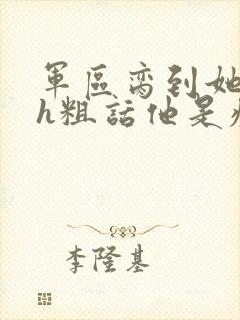 軍區寵到她
h粗話他是
李隆基